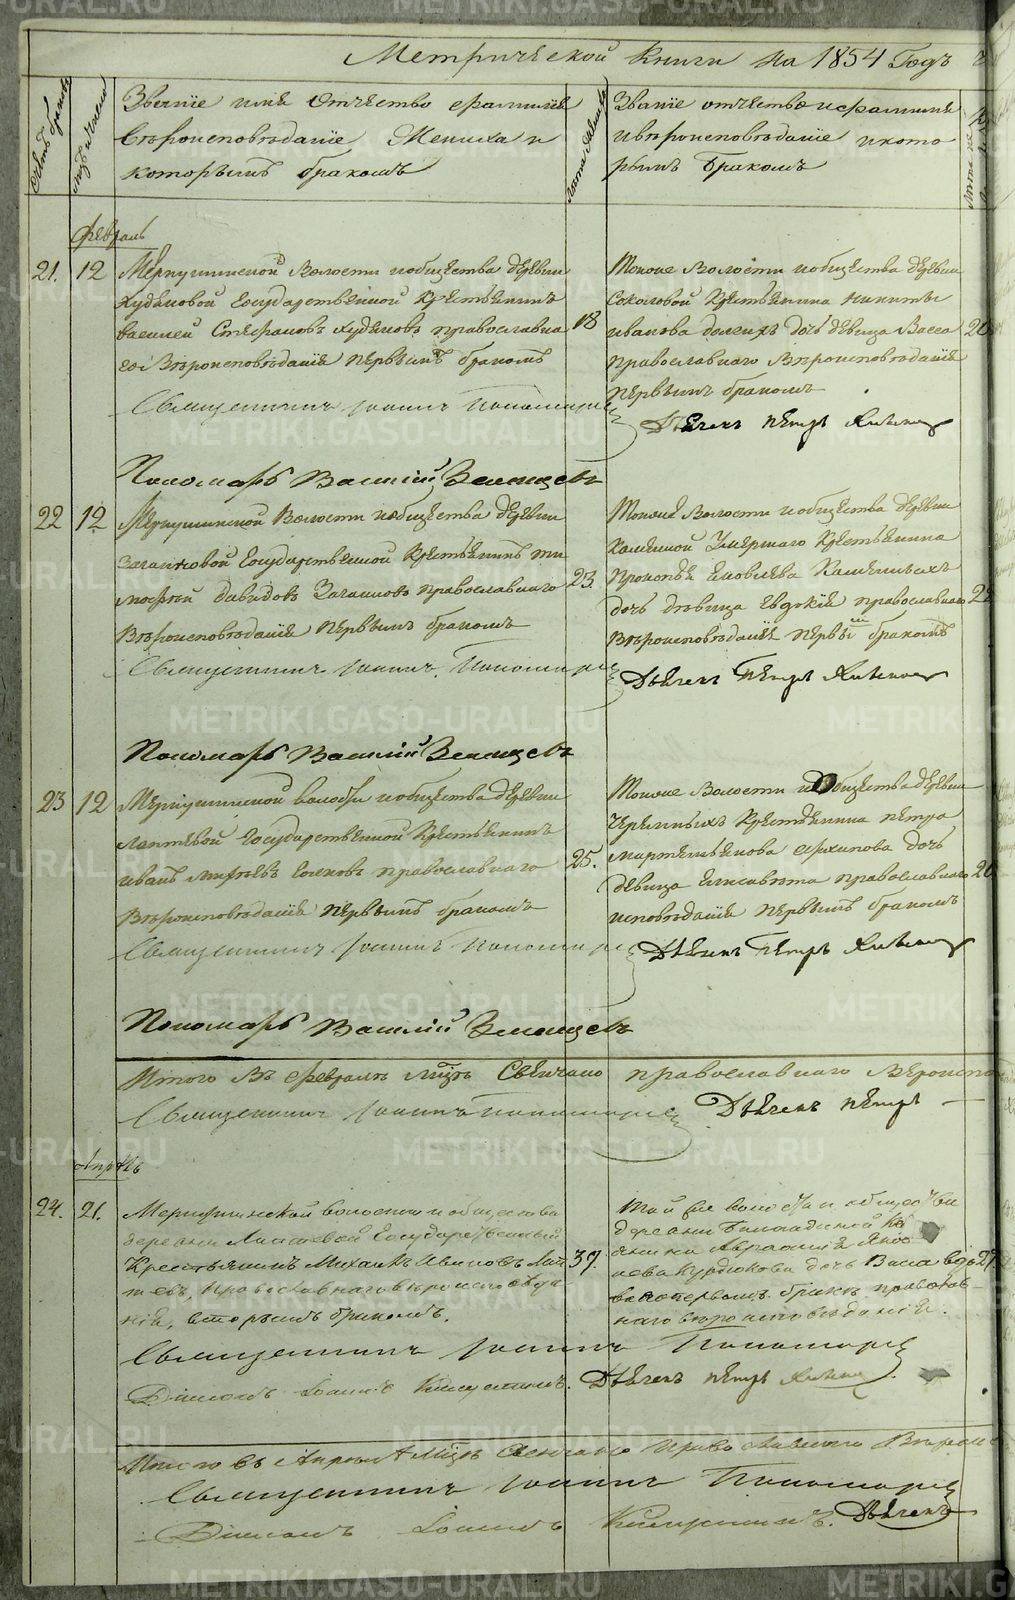 Метрической Книги на 1854 Годъ
Счетъ браковъ
Званіе имя Отчество фамилія
Вѣроисповѣданіе Жениха и
которымъ бракомъ
Лѣта жениха
Званіе отчество и фамилия
и вѣроисповѣданіе и кото
рымъ бракомъ
февраль
21. 12 Меркушинской Волости и общества деревни
Худяковой Государственной Крестьянинъ
Василей Стефановъ Худяковъ православна
го Вѣроисповѣданія первымъ бракомъ
18
Тойже Волости и общества деревни
Соколовой Крестьянина Никиты
Иванова Долгихъ дочь девица Васса
православнаго Вѣроисповѣданія
первымъ бракомъ
Священникъ Іоаннъ Пономаревъ
Дьячекъ Петръ
Пономарь Василій Земляцевъ
22 12 Меркушинской Волости и общества деревни
Государственной Крестьянинъ Ти
мофей Давидовъ православнаго
Вѣроисповѣданія первымъ бракомъ
23.
Тойже Волости и общества деревни
Каменной Умершаго Крестьянина
Прокопья Яковлева Каменныхъ
дочь дѣвица Евдокия православнаго
Вѣроисповѣданія первымъ бракомъ
Священникъ Іоаннъ Пономаревъ
Дьячекъ Петръ
Пономарь Василій Земляцевъ
23 12 Меркушинской волости и общества деревни
Лаптевой Государственной Крестьянинъ
Иванъ православнаго
Вѣроисповѣданія первымъ бракомъ
25.
Тойже Волости и общества деревни
Черемныхъ Крестьянина Петра
Мартемьянова Архипова дочь
девица Елисавета православнаго
исповѣданія первымъ бракомъ
Священникъ Іоаннъ Пономаревъ
Дьячекъ Петръ
Пономарь Василій Земляцевъ
Итого Въ февралѣ мцѣ Свенчано православнаго Вероиспо
Священникъ Іоаннъ Пономаревъ Дьячекъ Петръ
Апрѣль
24. 21. Меркушинской волости и общества
деревни Лаптевой Государственный
Крестьянинъ Михаилъ Ивановъ Лап
тевъ, православнаго вѣроисповѣда
нія, вторымъ бракомъ.
37
Той же волости и общества
деревни Кре
янина Авраамія Яков
лева Курдюкова дочь Васса вдо
ва первымъ бракомъ православ
наго вѣроисповѣданія.
27
Священникъ Іоаннъ Пономаревъ
Діаконъ Іоаннъ
Дьячекъ Петръ
Итого въ Апрѣлѣ Мцѣ Свенчано Православнаго Вѣроис
Священникъ Іоаннъ Пономаревъ
Діаконъ Іоаннъ
Дьячекъ
METRIKI.GASO-URAL.RU